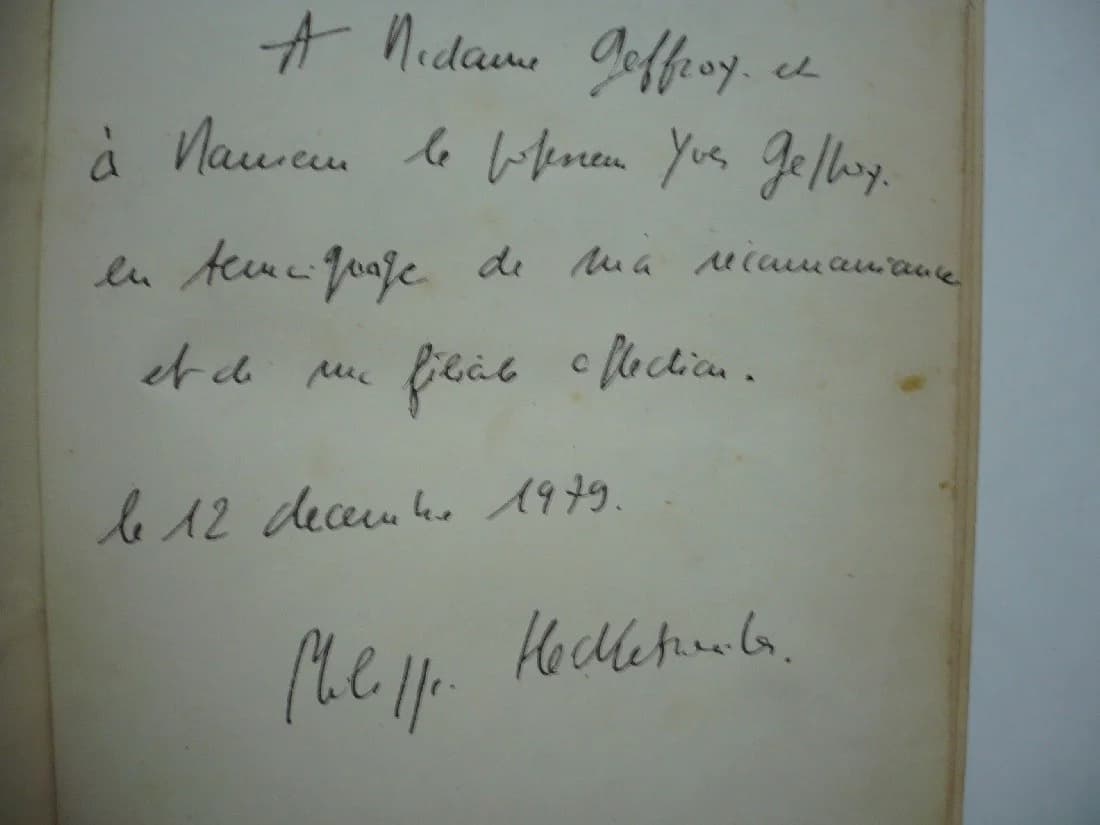 A Madame Geffroy. et
à Monsieur le professeur Yves Geffroy.
en temoignage de ma reconnaissance
et de ma filiale affection.
le 12 decembre 1979.
Philippe